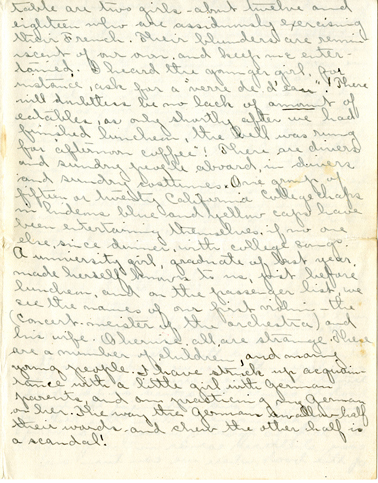 table are two girls - about twelve and
eighteen who are assiduously exercising
their French. Their blunders are remin-
iscent of our own, and keep me enter-
tained. I heard the younger girl, for
instance, ask for a "verre de d'eau". There
will doubtless be no lack of amount of
eatables, as only shortly after we had
finished luncheon, the bell was rung
for "afternoon coffee"! There are divers
and sundry people aboard, in divers
and sundry costumes. One group of
fifteen or twenty California college chaps
in blue and yellow caps have
been entertaining themselves, if no one
else, since dinner, with college songs.
A university girl, graduate of last year,
made herself known to us, just before
luncheon, and on the passenger list, we
see the names of our first violin the
(concert-meister of the orchestra) and
his wife. Otherwise, all are strange. There
are a number of children, and many
young people. I have struck up acquain-
tance with a little girl with German
parents, and am practicing my German
on her. The way the Germans swallow half
their words - and chew the other half is
a scandal!